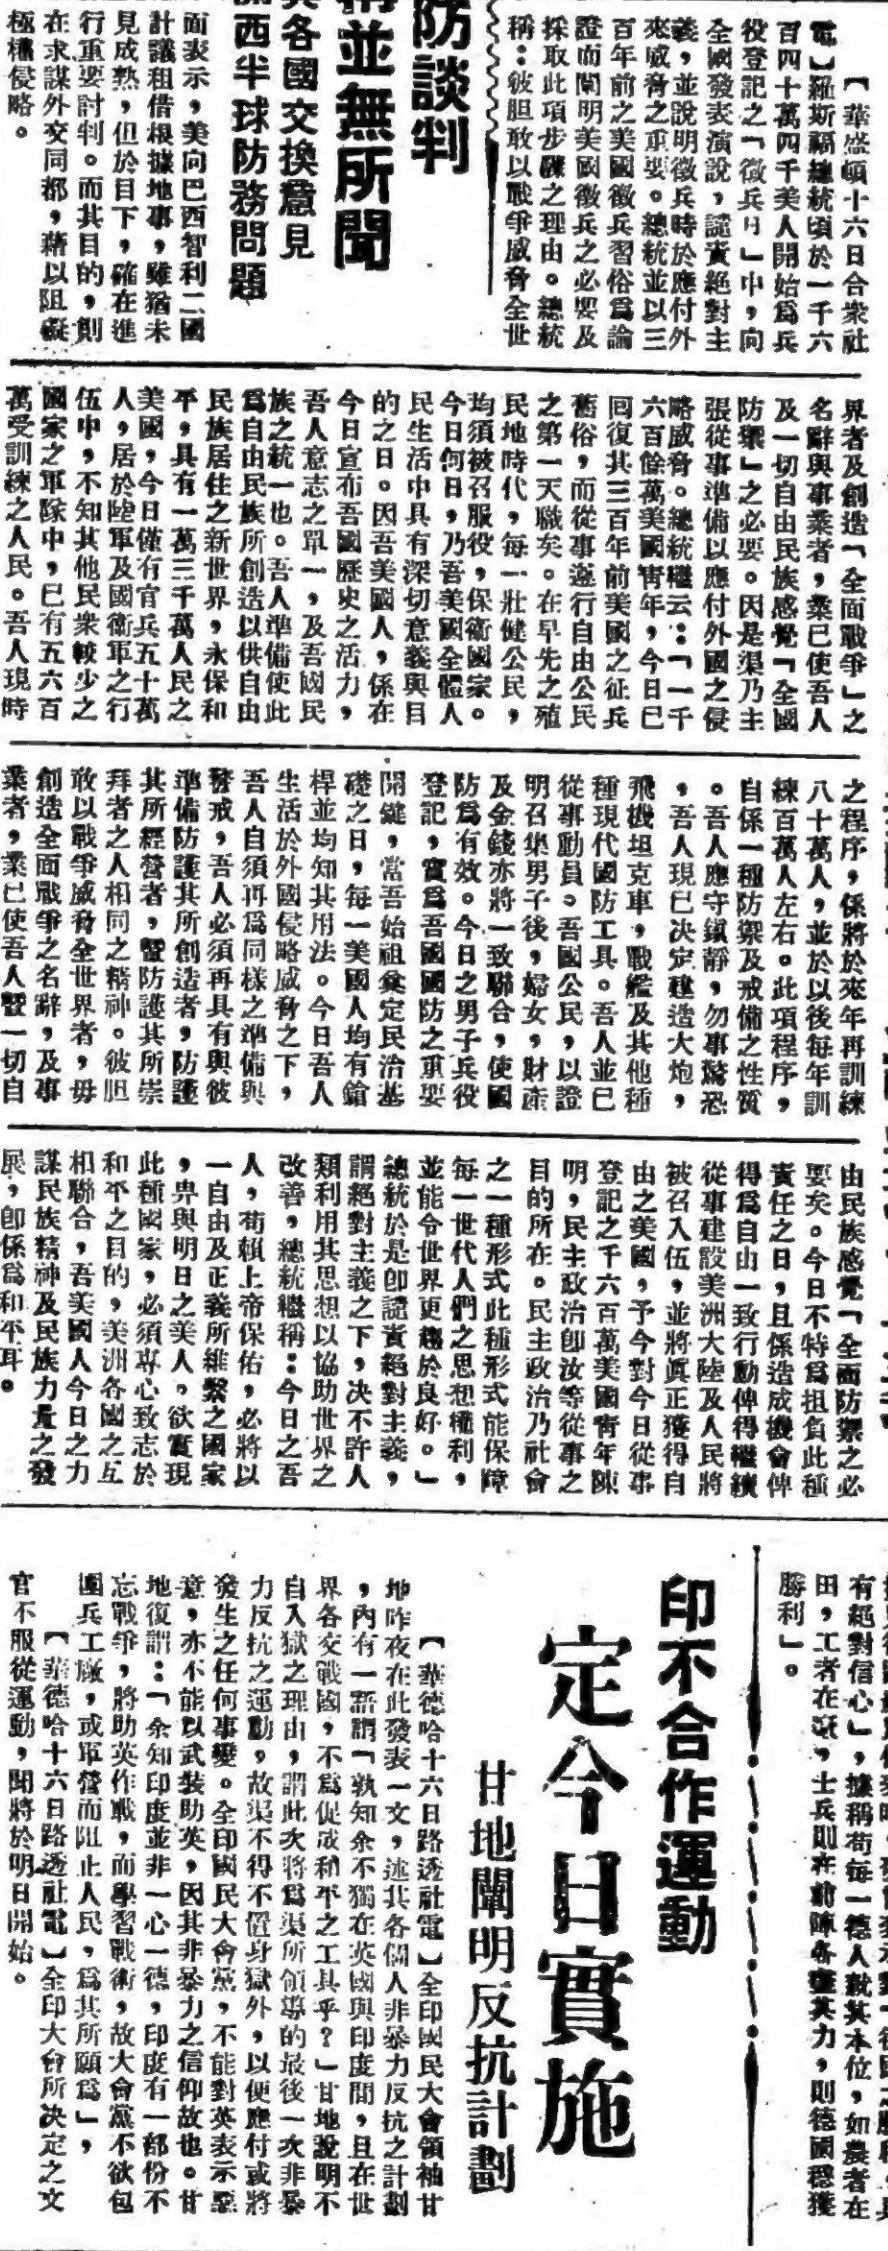 【華盛頓十六日合衆社
電】羅斯福總統頃於一千六
百四十萬四千美人開始爲兵
役登記之「徵兵日」中，向
全國發表演說，譴責絕對主
義，並說明徵兵時於應付外
來威脅之重要。總統並以三
百年前之美國徵兵習俗爲論
證而闡明美國徵兵之必要及
採取此項步驟之理由。總統
稱：彼胆敢以戰爭威脅全世
界者及創造「全面戰爭」之
名辭與事業者，業已使吾人
及一切自由民族感覺「全國
防禦」之必要。因是渠乃主
張從事準備以應付外國之侵
略威脅。總統繼云：「一千
六百餘萬美國靑年，今日已
回復其三百年前美國之征兵
舊俗，而從事遂行自由公民
之第一天職矣。在早先之殖
民地時代，每一壯健公民，
均須被召服役，保衛國家。
今日何日，乃吾美國全體人
民生活中具有深切意義與目
的之日。因吾美國人，係在
今日宣布吾國歷史之活力，
吾人意志之單一，及吾國民
族之統一也。吾人準備使此
爲自由民族所創造以供自由
民族居住之新世界，永保和
平，具有一萬三千萬人民之
美國，今日僅有官兵五十萬
人，居於陸軍及國衛軍之行
伍中，不知其他民衆較少之
國家之軍隊中，已有五六百
萬受訓練之人民。吾人現時
之程序，係將於來年再訓練
八十萬人，並於以後每年訓
練百萬人左右。此項程序，
自係一種防禦及戒備之性質
。吾人應守鎭靜，勿事驚恐
，吾人現已决定建造大炮，
飛機坦克車，戰艦及其他種
種現代國防工具。吾人並已
從事動員。吾國公民，以證
明召集男子後，婦女，財產
及金錢亦將一致聯合，使國
防爲有效。今日之男子兵役
登記，實爲吾國國防之重要
開鍵，當吾始祖奠定民治基
礎之日，每一美國人均有鎗
桿並均知其用法。今日吾人
生活於外國侵略威脅之下，
吾人自須再爲同樣之準備與
警戒，吾人必須再具有與彼
準備防護其所創造者，防護
其所經營者，暨防護其所崇
拜者之人相同之精神。彼胆
敢以戰爭威脅全世界者，毋
創造全面戰爭之名辭，及事
業者，業已使吾人暨一切自
由民族感覺「全面防禦之必
要矣。今日不特爲担負此種
責任之日，且係造成機會俾
得爲自由一致行動俾得繼續
從事建設美洲大陸及人民將
被召入伍，並將眞正獲得自
由之美國，予今對今日從事
登記之千六百萬美國靑年陳
明，民主政治卽汝等從事之
目的所在。民主政治乃社會
之一種形式此種形式能保障
每一世代人們之思想權利，
並能令世界更趨於良好。」
總統於是卽譴責絕對主義，
謂絕對主義之下，决不許人
類利用其思想以協助世界之
改善，總統繼稱：今日之吾
人，荀賴上帝保佑，必將以
一自由及正義所維繫之國家
，畀與明日之美人。欲實現
此種國家，必須專心致志於
和平之目的，美洲各國之互
相聯合，吾美國人今日之力
謀民族精神及民族力量之發
展，卽係爲和平耳。
防談判
稱並無所聞
與各國交換意見
西半球防務問題
面表示，美向巴西智利二國
計議租借根據地事，雖猶未
見成熟，但於目下，確在進
行重要討判。而其目的，則
在求謀外交同都，藉以阻礙
極權侵略。
有絕對信心」，據稱苟每一德人就其本位，如農者在
田，工者在廠，士兵則在前陣各盡其力，則德國穩獲
勝利」。
印不合作運動
定今日實施
甘地闡明反抗計劃
【華德哈十六日路透社電】全印國民大會領袖甘
地昨夜在此發表一文，述其各個人非暴力反抗之計劃
，內有一語謂「孰知余不獨在英國與印度間，且在世
界各交戰國，不爲促成和平之工具乎？」甘地說明不
自入獄之理由，謂此次將爲渠所領導的最後一次非暴
力反抗之運動，故渠不得不置身獄外，以便應付或將
發生之任何事變。全印國民大會黨，不能對英表示惡
意，亦不能以武裝助英，因其非暴力之信仰故也。甘
地復謂：「余知印度並非一心一德，印度有一部份不
忘戰爭，將助英作戰，而學習戰術，故大會黨不欲包
圍兵工廠，或軍營而阻止人民，爲其所願爲」，
【華德哈十六日路透社電】全印大會所决定之文
官不服從運動，聞將於明日開始。